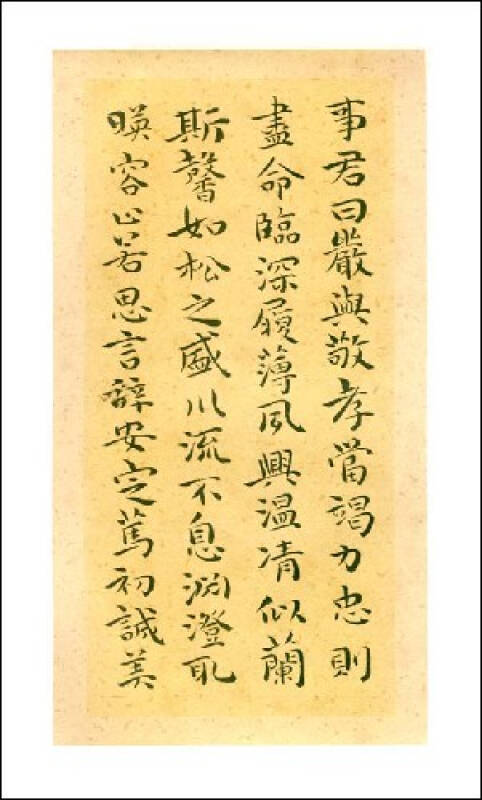 事君曰嚴與敬孝當竭力忠則
盡命臨深履薄夙興溫凊似蘭
斯馨如松之盛川流不息淵澄取
暎容止若思言辭安定篤初誠美